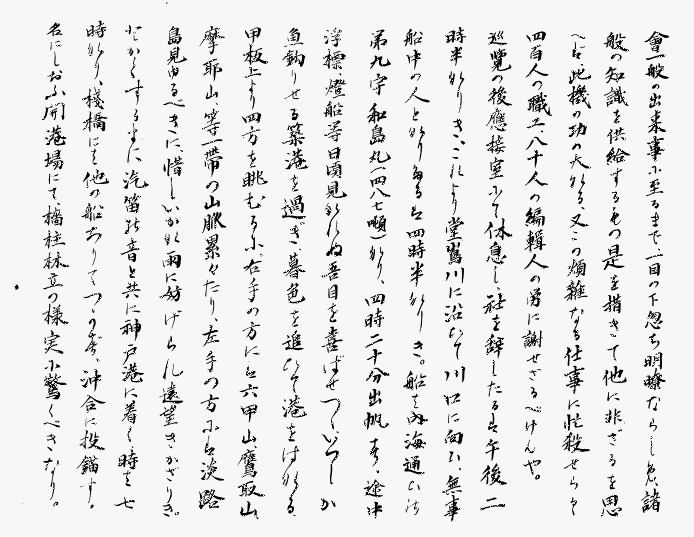 會一般の出来事に至るまで、一目の下忽ち明瞭ならしめ、諸
般の知識を供給するもの是を措きて他に非ざるを思
へば、此機の功の大なる、又この煩雑なる仕事に忙殺せらるゝ
四百人の職工、八十人の編輯人の労に謝せざるべけんや。
巡覧の後應接室にて休息し、社を辞したるは午後二
時半なりき。これより堂嶌川に沿ひて川口に向ひ、無事
船中の人となりたるは四時半なりき。船を内海通ひの
第九宇和島丸(四八七噸)なり、四時二十分出帆す。途中
浮標、燈船等日頃見なれぬ吾目を喜ばせつゝ、いつしか
魚釣りせる築港を過ぎ、暮色を追ひて港をはなる。
甲板上より四方を眺むるに、右手の方には六甲山、鷹取山、
摩耶山、等一帯の山脈累々たり、左手の方には淡路
島見ゆるべきに、惜しいかな雨に妨げられ遠望きかざりき。
とかくするまに、汽笛の音と共に神戸港に着く、時は七
時なり、棧橋には他の船ありてつゝのず、沖合に投錨す。
名にしおふ開港場にて、檣柱林立の様実に驚くべきなり。